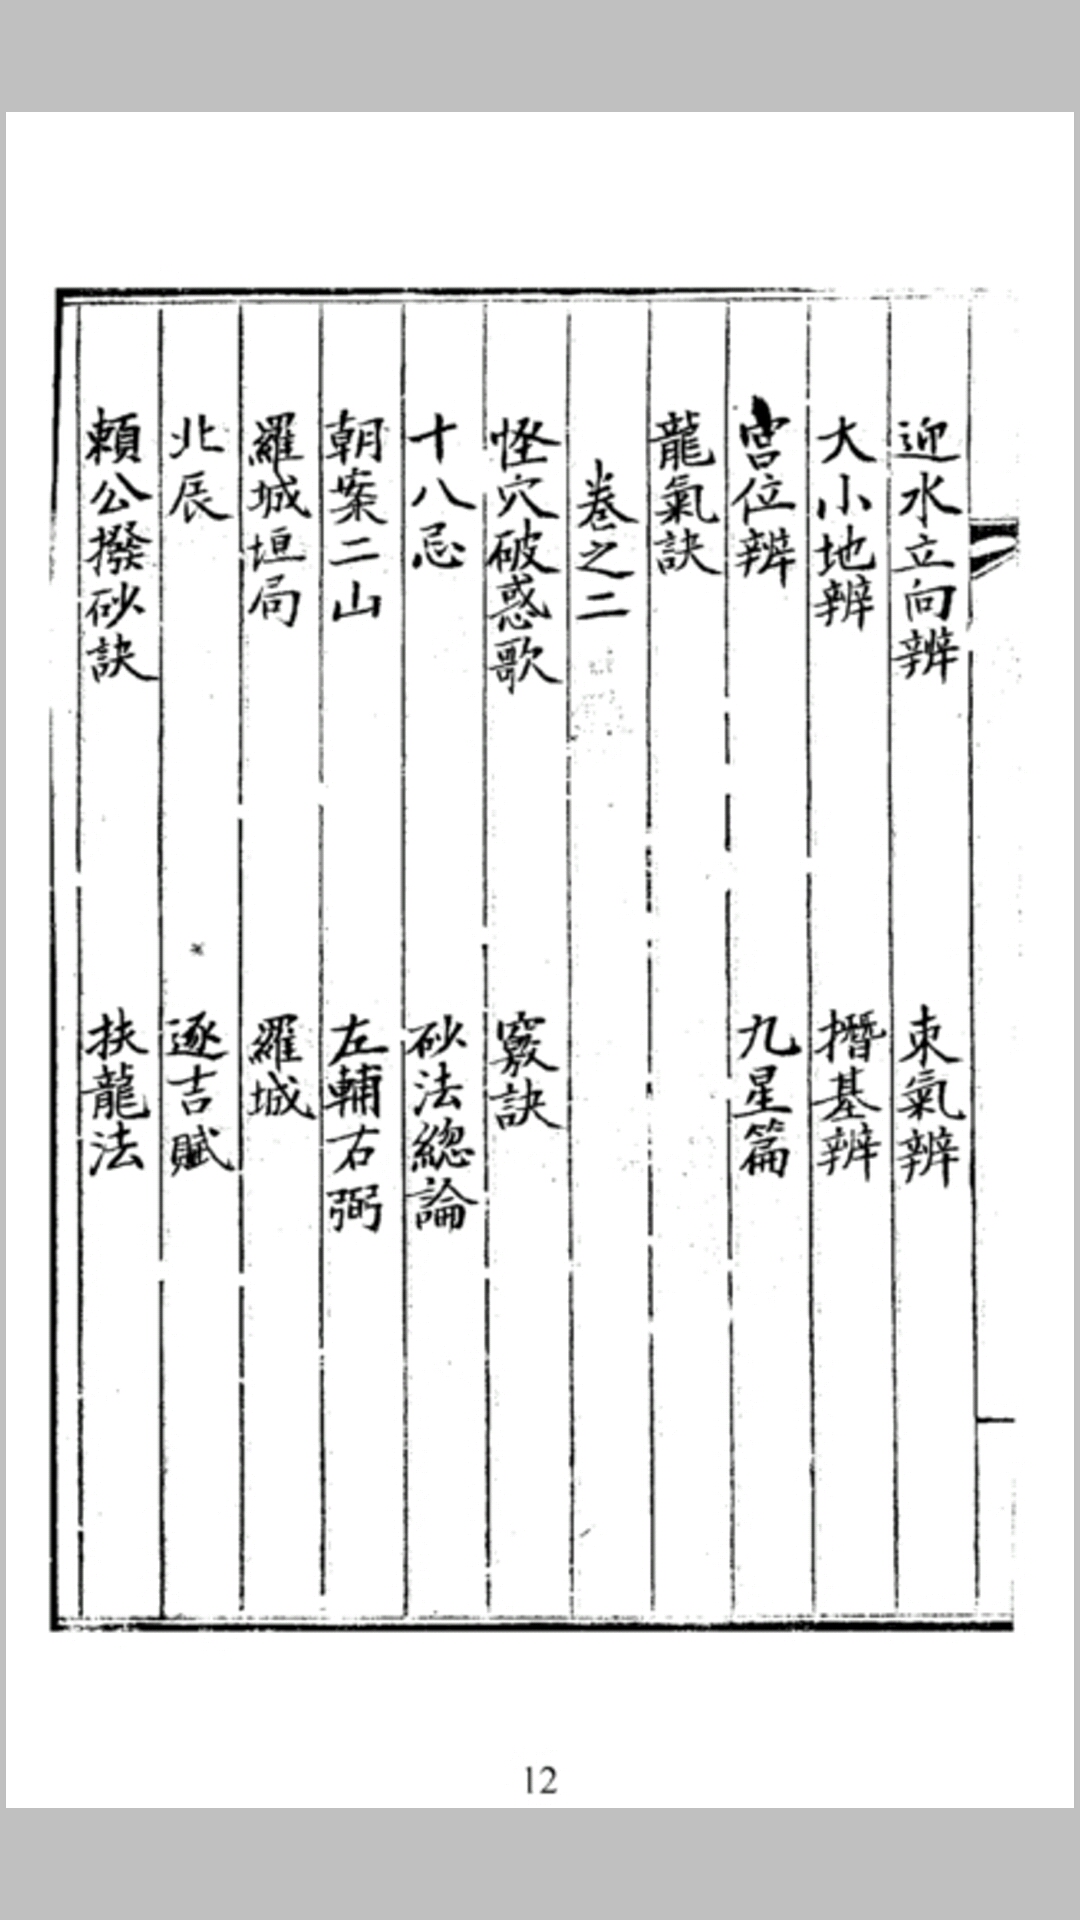 迎水立向辨 束氣辨
大小地辨 撍基辨
宮位辨 九星篇
龍氣訣
卷之二
怪穴破惑歌 竅訣
十八忌 砂法總論
朝案二山 左輔右弼
羅城垣局 羅城
北辰 逐吉賦
賴公撥砂訣 扶龍法
12